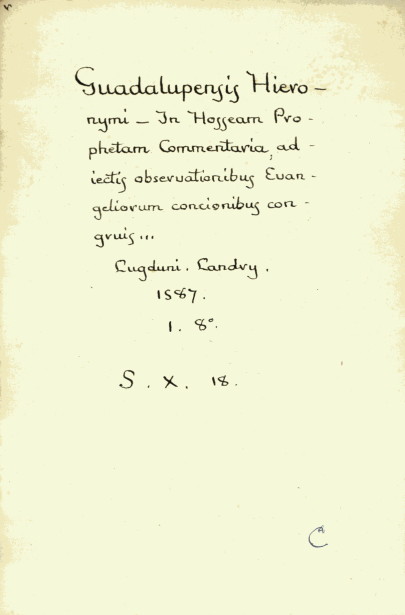 Guadalupensis Hiero–
nymi – In Hosseam Pro-
phetam Commentaria, ad-
iectis observationibus Evan-
geliorum concionibus con-
gruis...
Lugduni. Landry.
1587.
1. 8°.
S. X. 18.